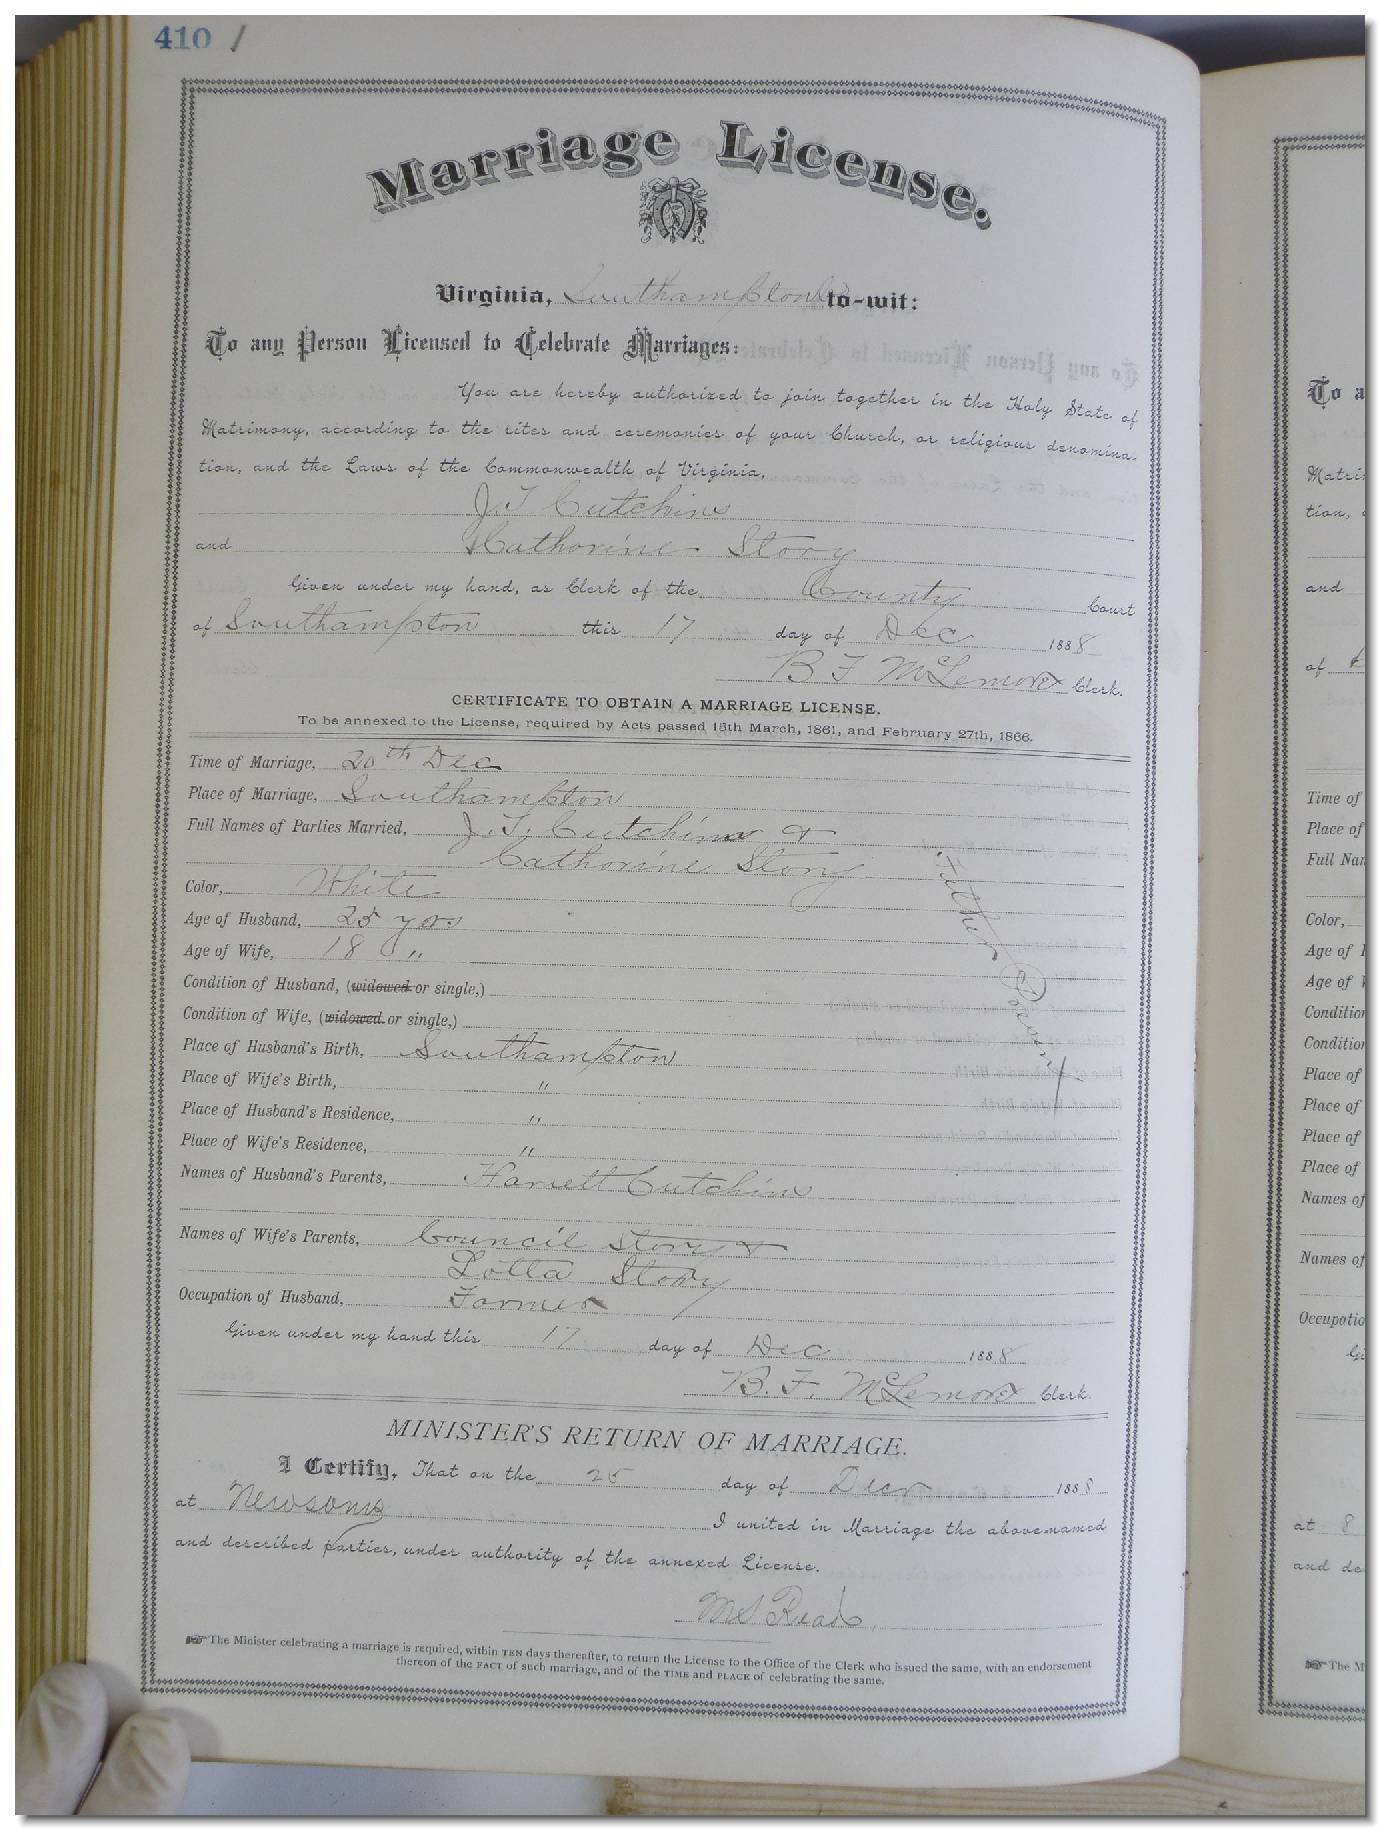 410 /
Marriage License.
Virginia, Southampton Co to-wit:
To any Person Licensed to Celebrate Marriages:
You are hereby authorized to join together in the Holy State of
Matrimony, according to the rites and ceremonies of your Church, or religious denomina-
tion, and the Laws of the Commonwealth of Virginia,
J. T. Cutchins
and Cathorine Story
Given under my hand, as Clerk of the County Court
of Southampton this 17 day of Dec 1888
B F McLemore Clerk.
CERTIFICATE TO OBTAIN A MARRIAGE LICENSE.
To be annexed to the License, required by Acts passed 15th March, 1861, and February 27th, 1866.
Time of Marriage, 20th Dec
Place of Marriage, Southampton
Full Names of Parties Married, J. T. Cutchins &
Cathorine Story
Color, White
Age of Husband, 25 yrs
Age of Wife, 18 "
Condition of Husband, (widowed or single,)
Condition of Wife, (widowed or single,)
Place of Husband's Birth, Southampton
Place of Wife's Birth, "
Place of Husband's Residence, "
Place of Wife's Residence, "
Names of Husband's Parents, Harriett Cutchins
Names of Wife's Parents, Council Story &
Lotta Story
Occupation of Husband, Farmer
Father Present
Given under my hand this 17 day of Dec 1888
B. F. McLemore Clerk.
MINISTER'S RETURN OF MARRIAGE.
I Certify, That on the 25 day of Decr 1888
at Newsoms I united in Marriage the above-named
and described parties, under authority of the annexed License.
M S Read
The Minister celebrating a marriage is required, within TEN days thereafter, to return the License to the Office of the Clerk who issued the same, with an endorsement
thereon of the FACT of such marriage, and of the TIME and PLACE of celebrating the same.
To a
Matri
tion,
and
of
Time of
Place of
Full Nam
Color,
Age of
Age of
Condition
Condition
Place of
Place of
Place of
Place of
Names of
Names of
Occupatio
at 8
and de
The M